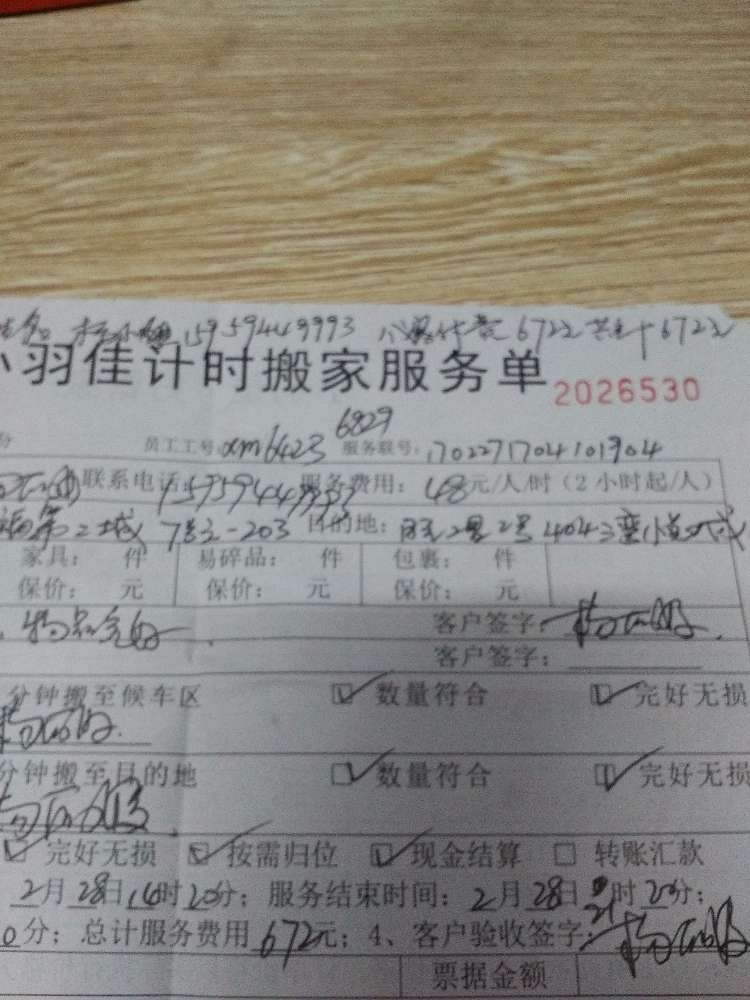 15959449993 6722 6722
羽佳计时搬家服务单 2026530
6829
员工工号: xm6423 服务联号: 1702271704101904
联系电话: 15959449993 服务费用: 48元/人/时（2小时起/人）
第二城 7号 -203 目的地: 2号404
家具: 件 易碎品: 件 包裹: 件
保价: 元 保价: 元 保价: 元
物品完好 客户签字:
客户签字:
分钟搬至候车区 数量符合 完好无损
分钟搬至目的地 数量符合 完好无损
完好无损 按需归位 现金结算 转账汇款
2月28日14时20分; 服务结束时间: 2月28日21时20分;
0分; 总计服务费用672元; 4、客户验收签字:
票据金额